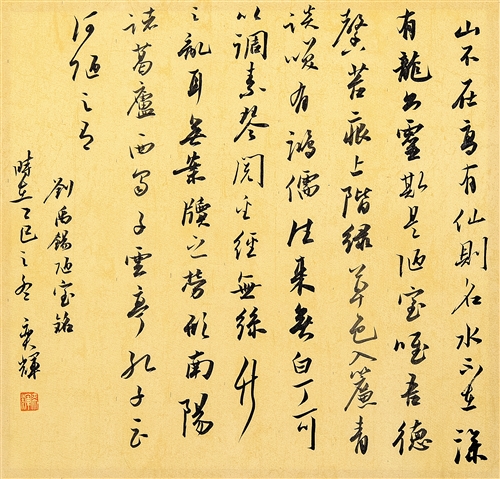 山不在高有仙則名水不在深
有龍則靈斯是陋室唯吾德
馨苔痕上階緑草色入簾青
談笑有鴻儒往來無白丁可
以調素琴閱金經無絲竹
之亂耳無案牘之勞形南陽
諸葛廬西蜀子雲亭孔子云
何陋之有
劉禹錫陋室銘
時在巳之冬 奕輝